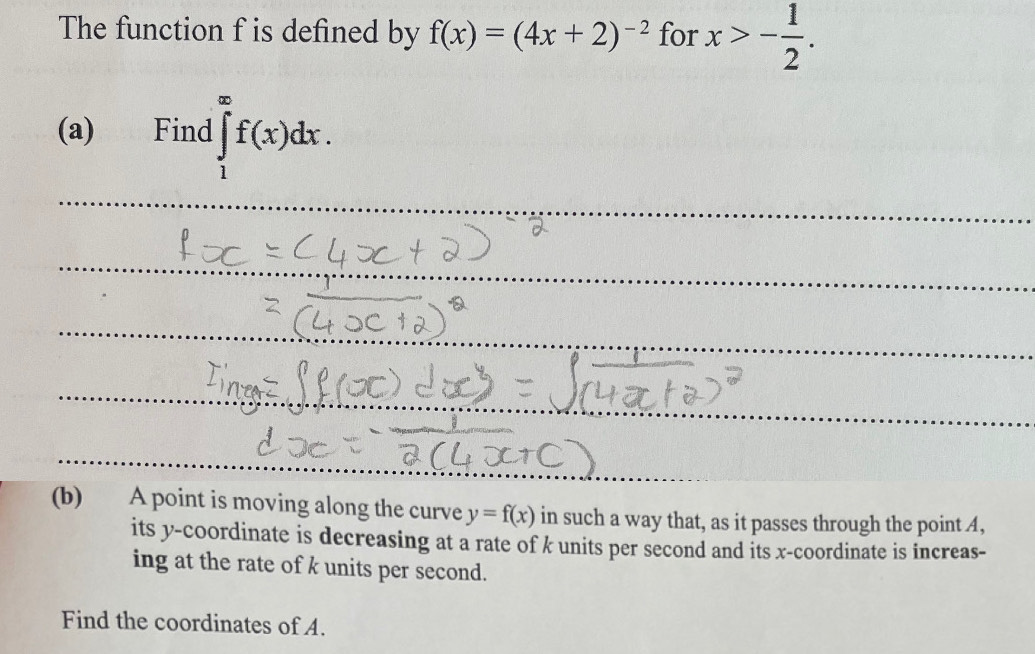 The function f is defined by f(x) = (4x + 2)⁻² for x > −1/2.
(a) Find ∫₁^∞ f(x)dx.
fx = (4x + 2)⁻²
= 1/(4x + 2)²
∫f(x) dx = ∫1/(4x+2)²
dx = -1/2(4x+C)
(b) A point is moving along the curve y = f(x) in such a way that, as it passes through the point A,
its y-coordinate is decreasing at a rate of k units per second and its x-coordinate is increas-
ing at the rate of k units per second.
Find the coordinates of A.